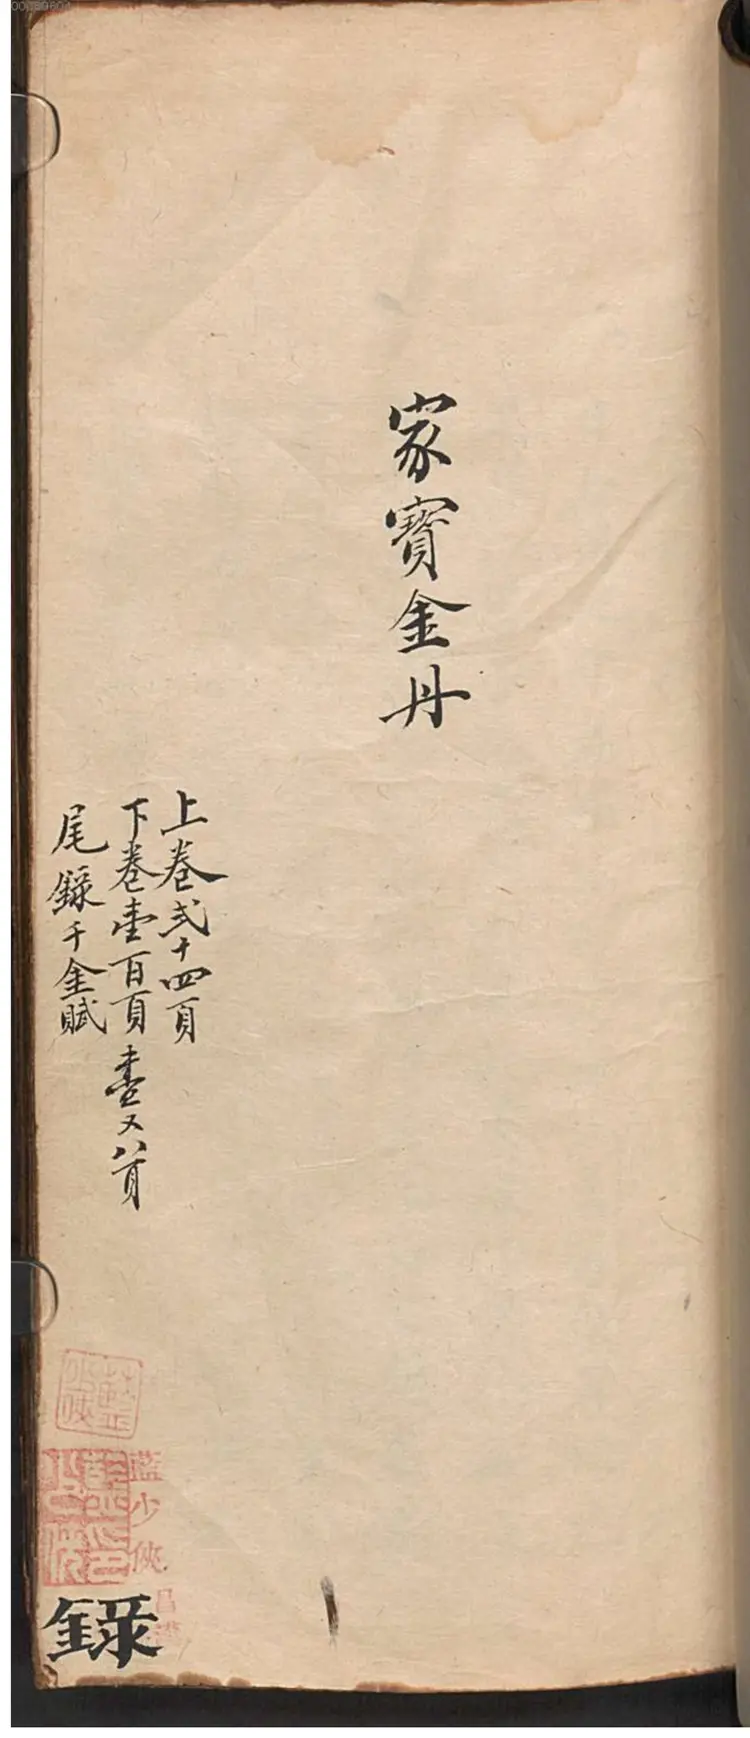 家寶金丹
上卷弍十四頁
下卷壹百頁 又八頁
尾錄千金賦
藍少俠
錄